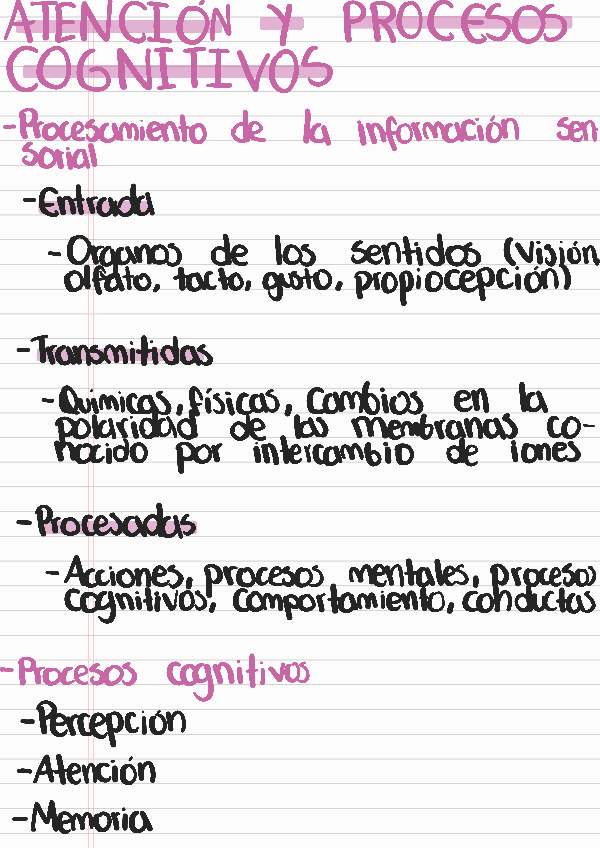 ATENCIÓN Y PROCESOS
COGNITIVOS
-Procesamiento de la información sen
sorial
-Entrada
-Organos de los sentidos (Visión
olfato, tacto, gusto, propiocepción)
-Transmitidas
-Quimicas, físicas, Cambios en la
polaridad de las membranas co-
nocido por intercambio de iones
-Procesadas
-Acciones, procesos mentales, procesos
cognitivos, comportamiento, conductas
-Procesos cognitivos
-Percepción
-Atención
-Memoria